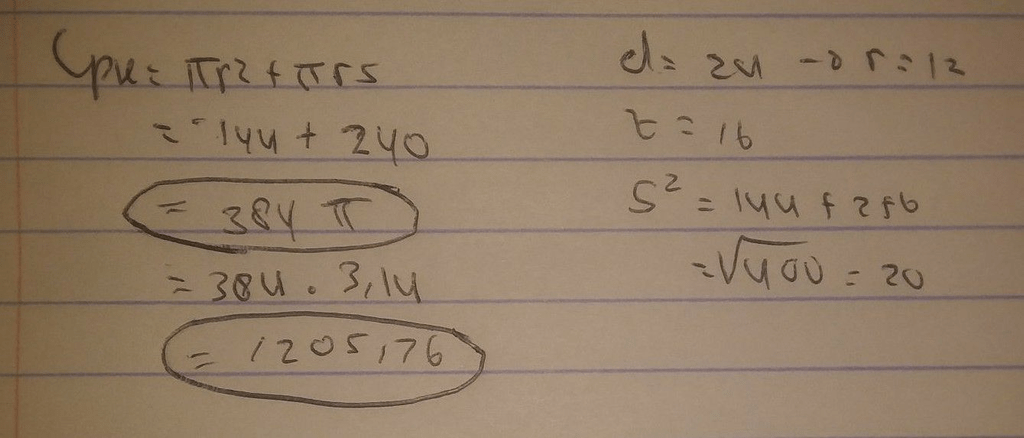 Lpk = πr2 + πrs
= 144 + 240
= 384 π
= 384 . 3,14
= 1205,76
d = 24 → r = 12
t = 16
S² = 144 + 256
= √400 = 20